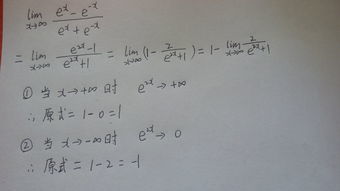 lim x→∞ (e^x − e^−x) / (e^x + e^−x)
= lim x→∞ (e^2x − 1) / (e^2x + 1) = lim x→∞ (1 − 2 / (e^2x + 1)) = 1 − lim x→∞ 2 / (e^2x + 1)
① 当 x→+∞ 时 e^2x → +∞
∴ 原式 = 1 − 0 = 1
② 当 x→−∞ 时 e^2x → 0
∴ 原式 = 1 − 2 = −1